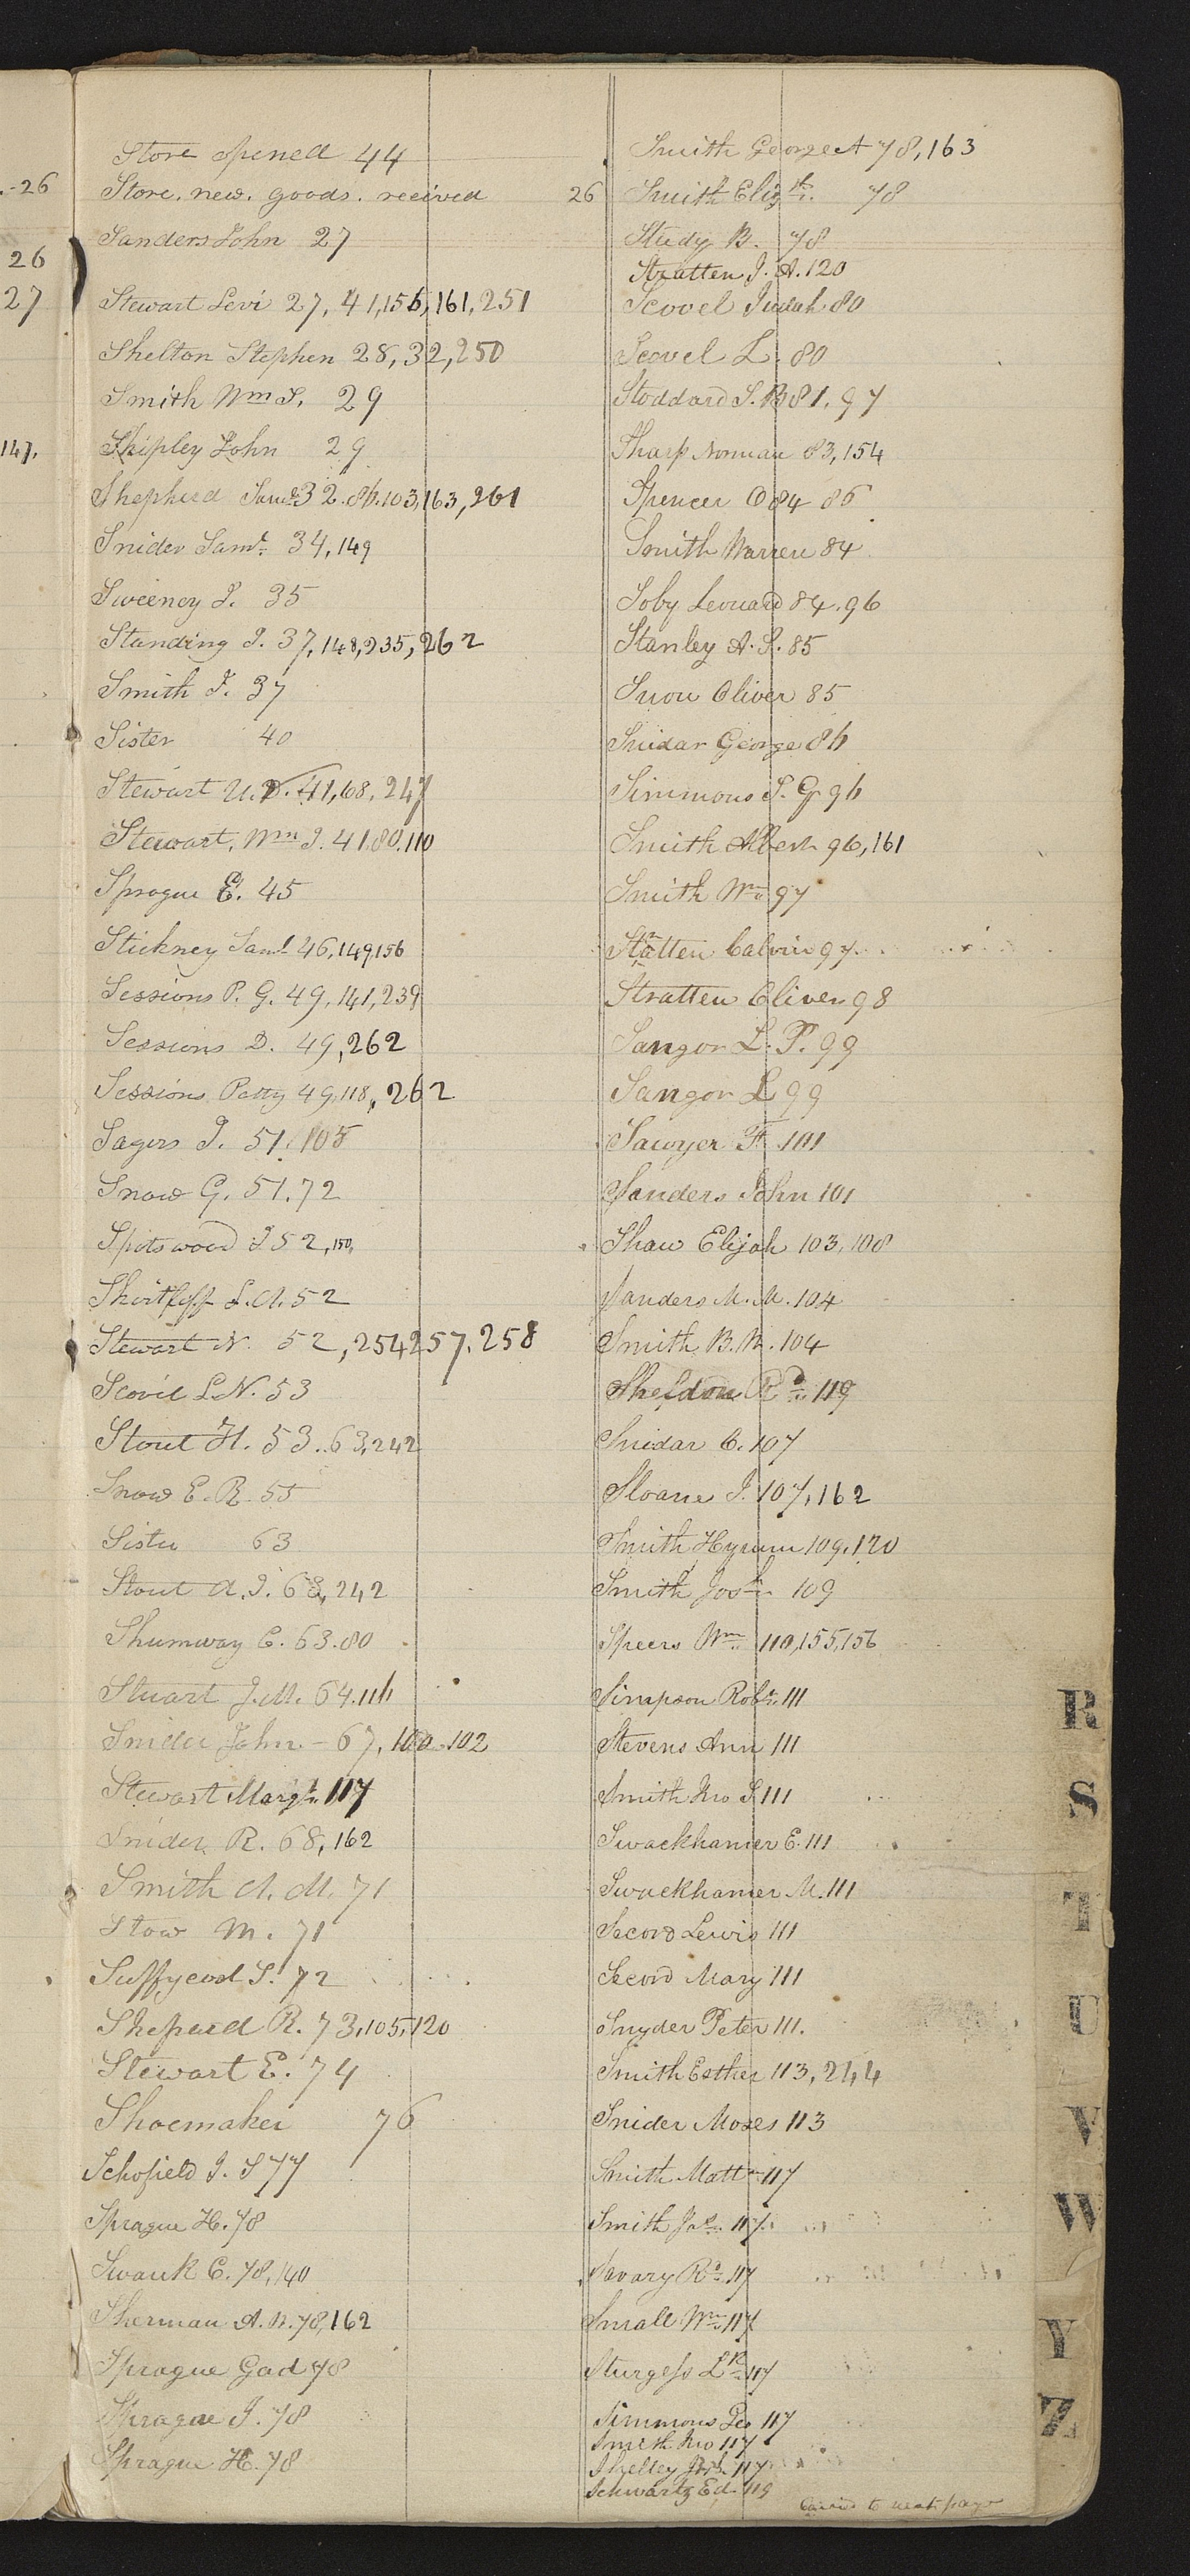 Store opened 44
Store. new. goods. received 26
Sanders John 27
Stewart Levi 27, 41, 155, 161, 251
Shelton Stephen 28, 32, 250
Smith Wm S. 29
Shipley John 29
Shepherd Saml 32. 86. 103, 163, 261
Snider Saml. 34, 149
Sweeney J. 35
Standing J. 37, 148, 235, 262
Smith J. 37
Sister 40
Stewart U.B. 41, 68, 247
Stewart. Wm J. 41. 80. 110
Sprague E. 45
Stickney Saml 46, 149, 156
Sessions P. G. 49, 141, 239
Sessions D. 49, 262
Sessions Patty 49, 118, 262
Sagers J. 51. 105
Snow G. 51. 72
Spotswood J 52, 150,
Shirtliff L. A. 52
Stewart N. 52, 254 257. 258
Scovil L. N. 53
Stout H. 53. 63, 242
Snow E. R. 55
Sister 63
Stout A. J. 63, 242
Shumway C. 63. 80
Stuart J. M. 64. 116
Snider John - 67, 100 - 102
Stewart Margt. 117
Snider R. 68, 162
Smith A. M. 71
Stow M. 71
Suffycool S. 72
Sheperd R. 73, 105, 120
Stewart E. 74
Shoemaker 76
Schofield J. S 77
Sprague H. 78
Swank C. 78, 140
Sherman A. N. 78, 162
Sprague Gad 78
Sprague J. 78
Sprague H. 78
Smith George A 78, 163
Smith Elizth. 78
Study B. 78
Stratten J. A. 120
Scovel Judah 80
Scovel L. 80
Stoddard S. B 81, 97
Sharp Norman 83, 154
Spencer O 84 86
Smith Warren 84
Soby Leonard 84. 96
Stanley A. S. 85
Snow Oliver 85
Snidar George 86
Simmons S. G 96
Smith Albert 96, 161
Smith Wm 97
Stratten Calvin 97
Stratten Oliver 98
Sangor L. P. 99
Sangor L 99
Sawyer F. 101
Sanders John 101
Shaw Elijah 103, 108
Sanders M. M. 104
Smith B. M. 104
Sheldon Rd 119
Snidar C. 107
Sloane J. 107, 162
Smith Hyrum 109. 120
Smith Josh 109
Speers Wm 110, 155, 156
Simpson Robt. 111
Stevens Ann 111
Smith Jno S 111
Swackhamer E. 111
Swackhamer M. 111
Secord Lewis 111
Secord Mary 111
Snyder Peter 111.
Smith Esther 113, 244
Snider Moses 113
Smith Mattw 117
Smith Jas. 117
Savary Rd 117
Small Wm 117
Sturgess Lr 117
Simmons Geo 117
Smith Jno 117
Shelley Josh. 117
Schwartz Ed. 119
Carried to next page
26
26
27
147.
R
S
T
U
V
W
Y
Z